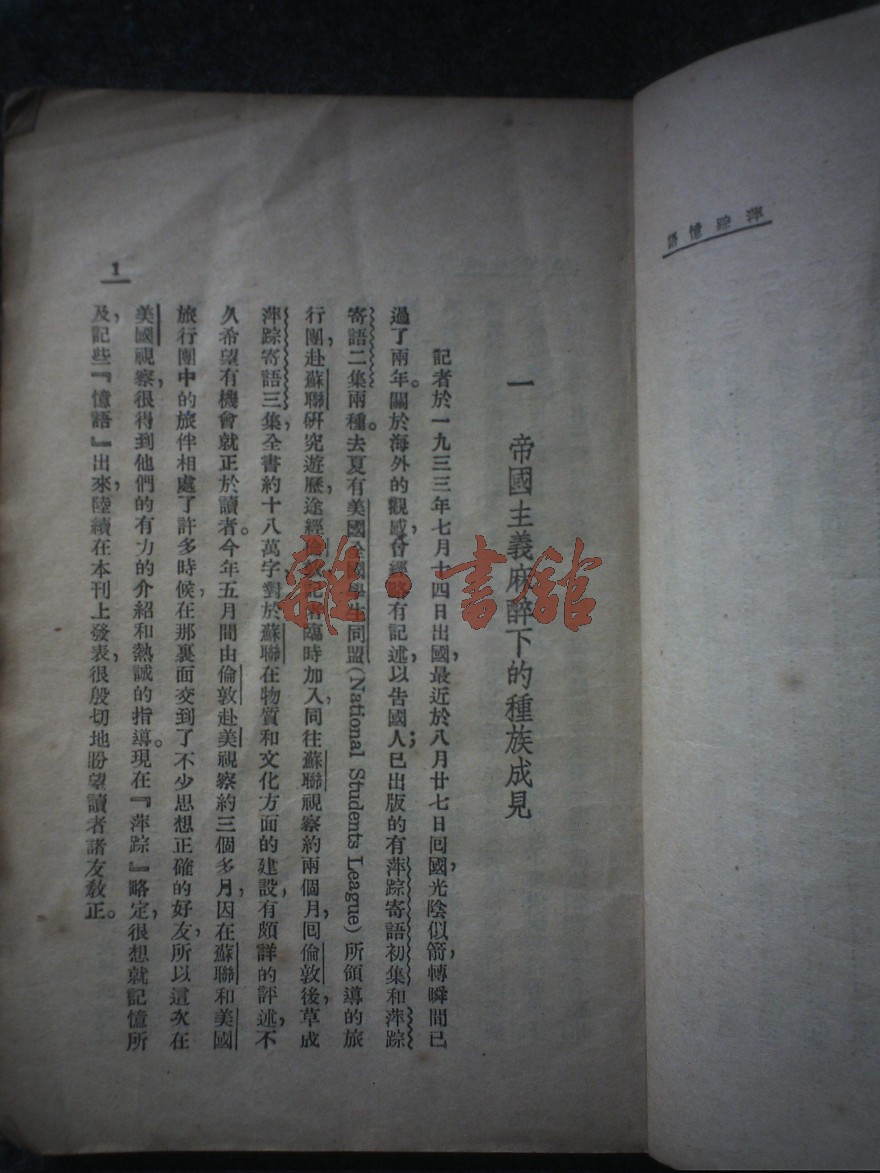 萍踪憶語
一 帝國主義麻醉下的種族成見
記者於一九三三年七月十四日出國，最近於八月廿七日回國，光陰似箭，轉瞬間已
過了兩年。關於海外的觀感，曾經略有記述，以告國人；已出版的有萍踪寄語初集和萍踪
寄語二集兩種。去夏有美國全國學生同盟(National Students League)所領導的旅
行團，赴蘇聯研究遊歷，途經倫敦，記者臨時加入，同往蘇聯視察約兩個月，回倫敦後，草成
萍踪寄語三集，全書約十八萬字，對於蘇聯在物質和文化方面的建設，有頗詳的評述，不
久希望有機會就正於讀者。今年五月間由倫敦赴美視察約三個多月，因在蘇聯和美國
旅行團中的旅伴相處了許多時候，在那裏面交到了不少思想正確的好友，所以這次在
美國視察，很得到他們的有力的介紹和熱誠的指導。現在『萍踪』略定，很想就記憶所
及，記些『憶語』出來，陸續在本刊上發表，很殷切地盼望讀者諸友敎正。
1
雜·書館